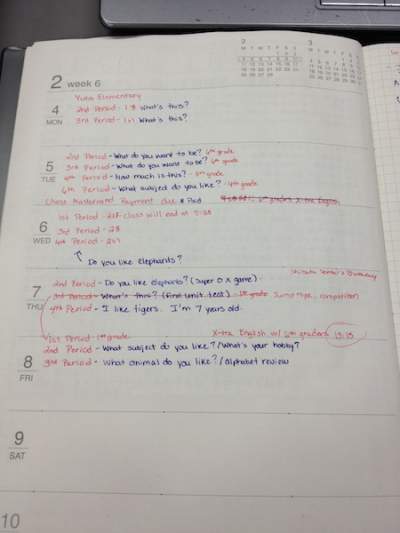 2 week 6
4 MON
Yuba Elementary
2nd Period - 1.8 What's this?
3rd Period - 1.1 What's this?
5 TUE
2nd Period - What do you want to be? 6th grade
3rd Period - What do you want to be? 6th grade
4th Period - How much is this? - 5th grade
6th Period - What subject do you like? - 4th grade
Chase Mastercard Payment due * Paid
6th graders X-tra English
6 WED
1st Period - class will end at
3rd Period - 2.3
4th Period - 2.1
Do you like elephants?
7 THU
Birthday
2nd Period - Do you like elephants? (Super O X game)
3rd Period - What's this? (Find Unit Test) - 1st grade Jump rope competition
4th Period - I like tigers. I'm 7 years old.
8 FRI
1st Period - 1st grade
X-tra English w/ 6th graders 15:15
2nd Period - What subject do you like? / What's your hobby?
3rd Period - What animal do you like? / Alphabet review
9 SAT
10